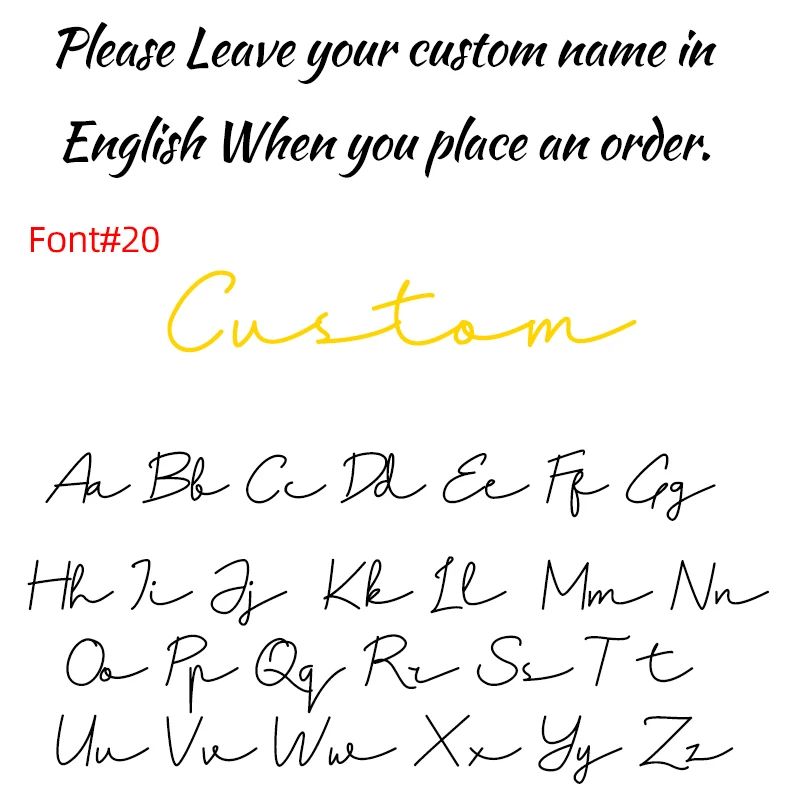 Please Leave your custom name in
English When you place an order.
Font#20
Custom
Aa Bb Cc Dd Ee Ff Gg
Hh Ii Jj Kk Ll Mm Nn
Oo Pp Qq Rr Ss T t
Uu Vv Ww Xx Yy Zz